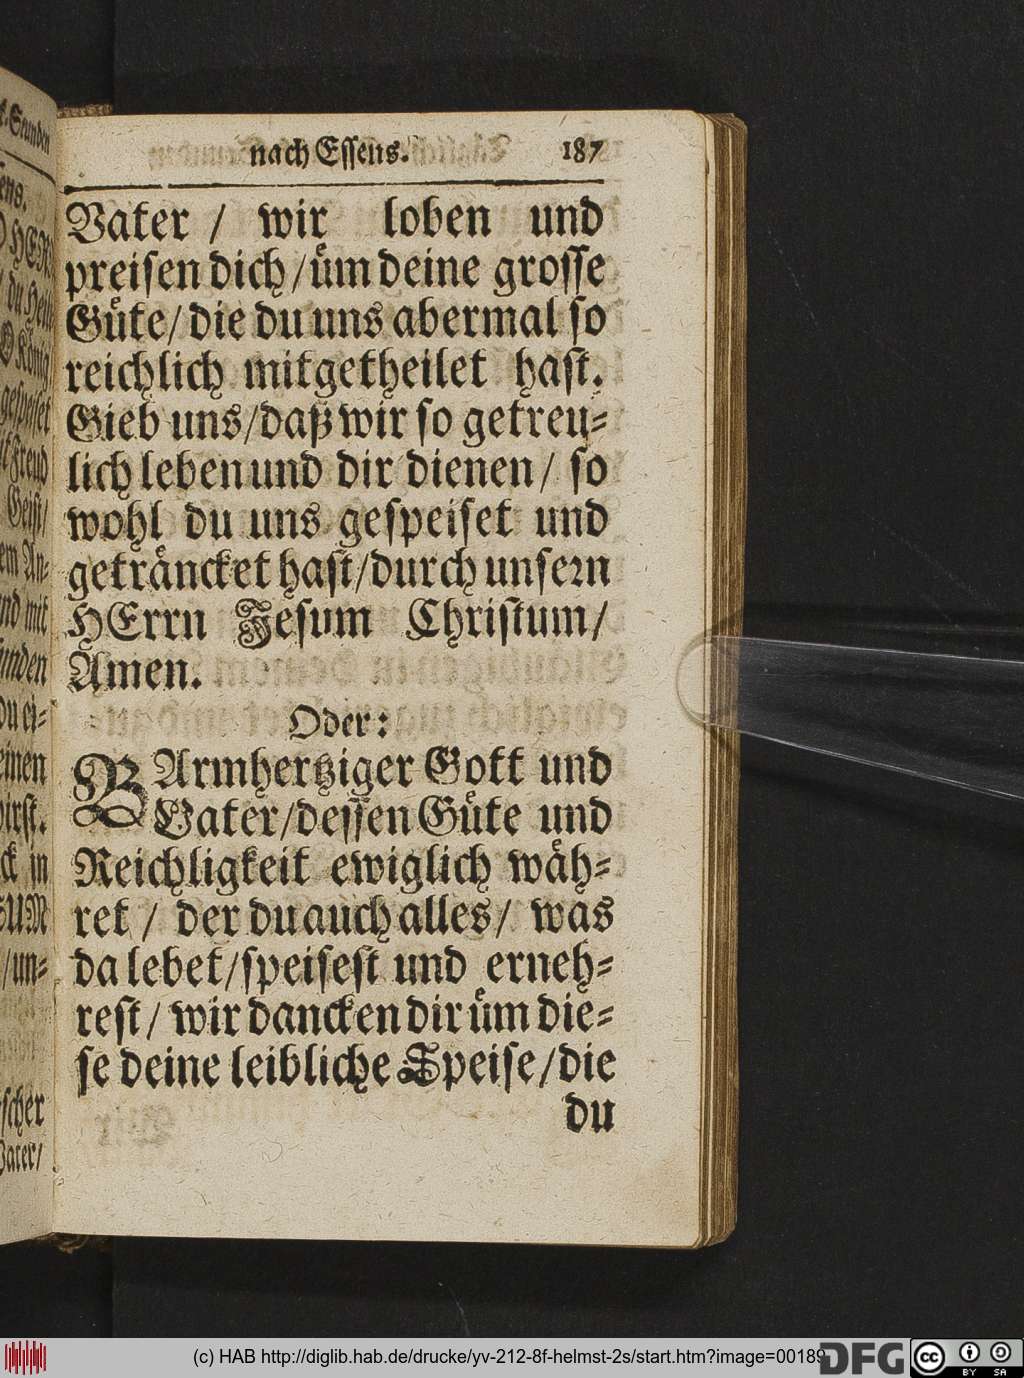 nach Essens. 187
Vater / wir loben und
preisen dich / üm deine grosse
Güte / die du uns abermal so
reichlich mitgetheilet hast.
Gieb uns / daß wir so getreu-
lich leben und dir dienen / so
wohl du uns gespeiset und
geträncket hast / durch unsern
HErrn Jesum Christum /
Amen.
Oder:
BArmhertziger Gott und
Vater / dessen Güte und
Reichligkeit ewiglich wäh-
ret / der du auch alles / was
da lebet / speisest und erneh-
rest / wir dancken dir üm die-
se deine leibliche Speise / die
du
(c) HAB http://diglib.hab.de/drucke/yv-212-8f-helmst-2s/start.htm?image=00189
DFG
cc BY SA